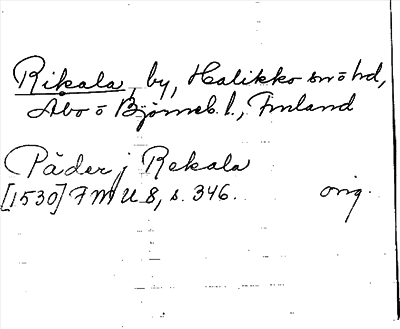 Rikala, by, Halikko sn o hd,
Åbo o Björneb. l., Finland
Päder j Rekala
[1530] FMU 8, s. 346. orig.